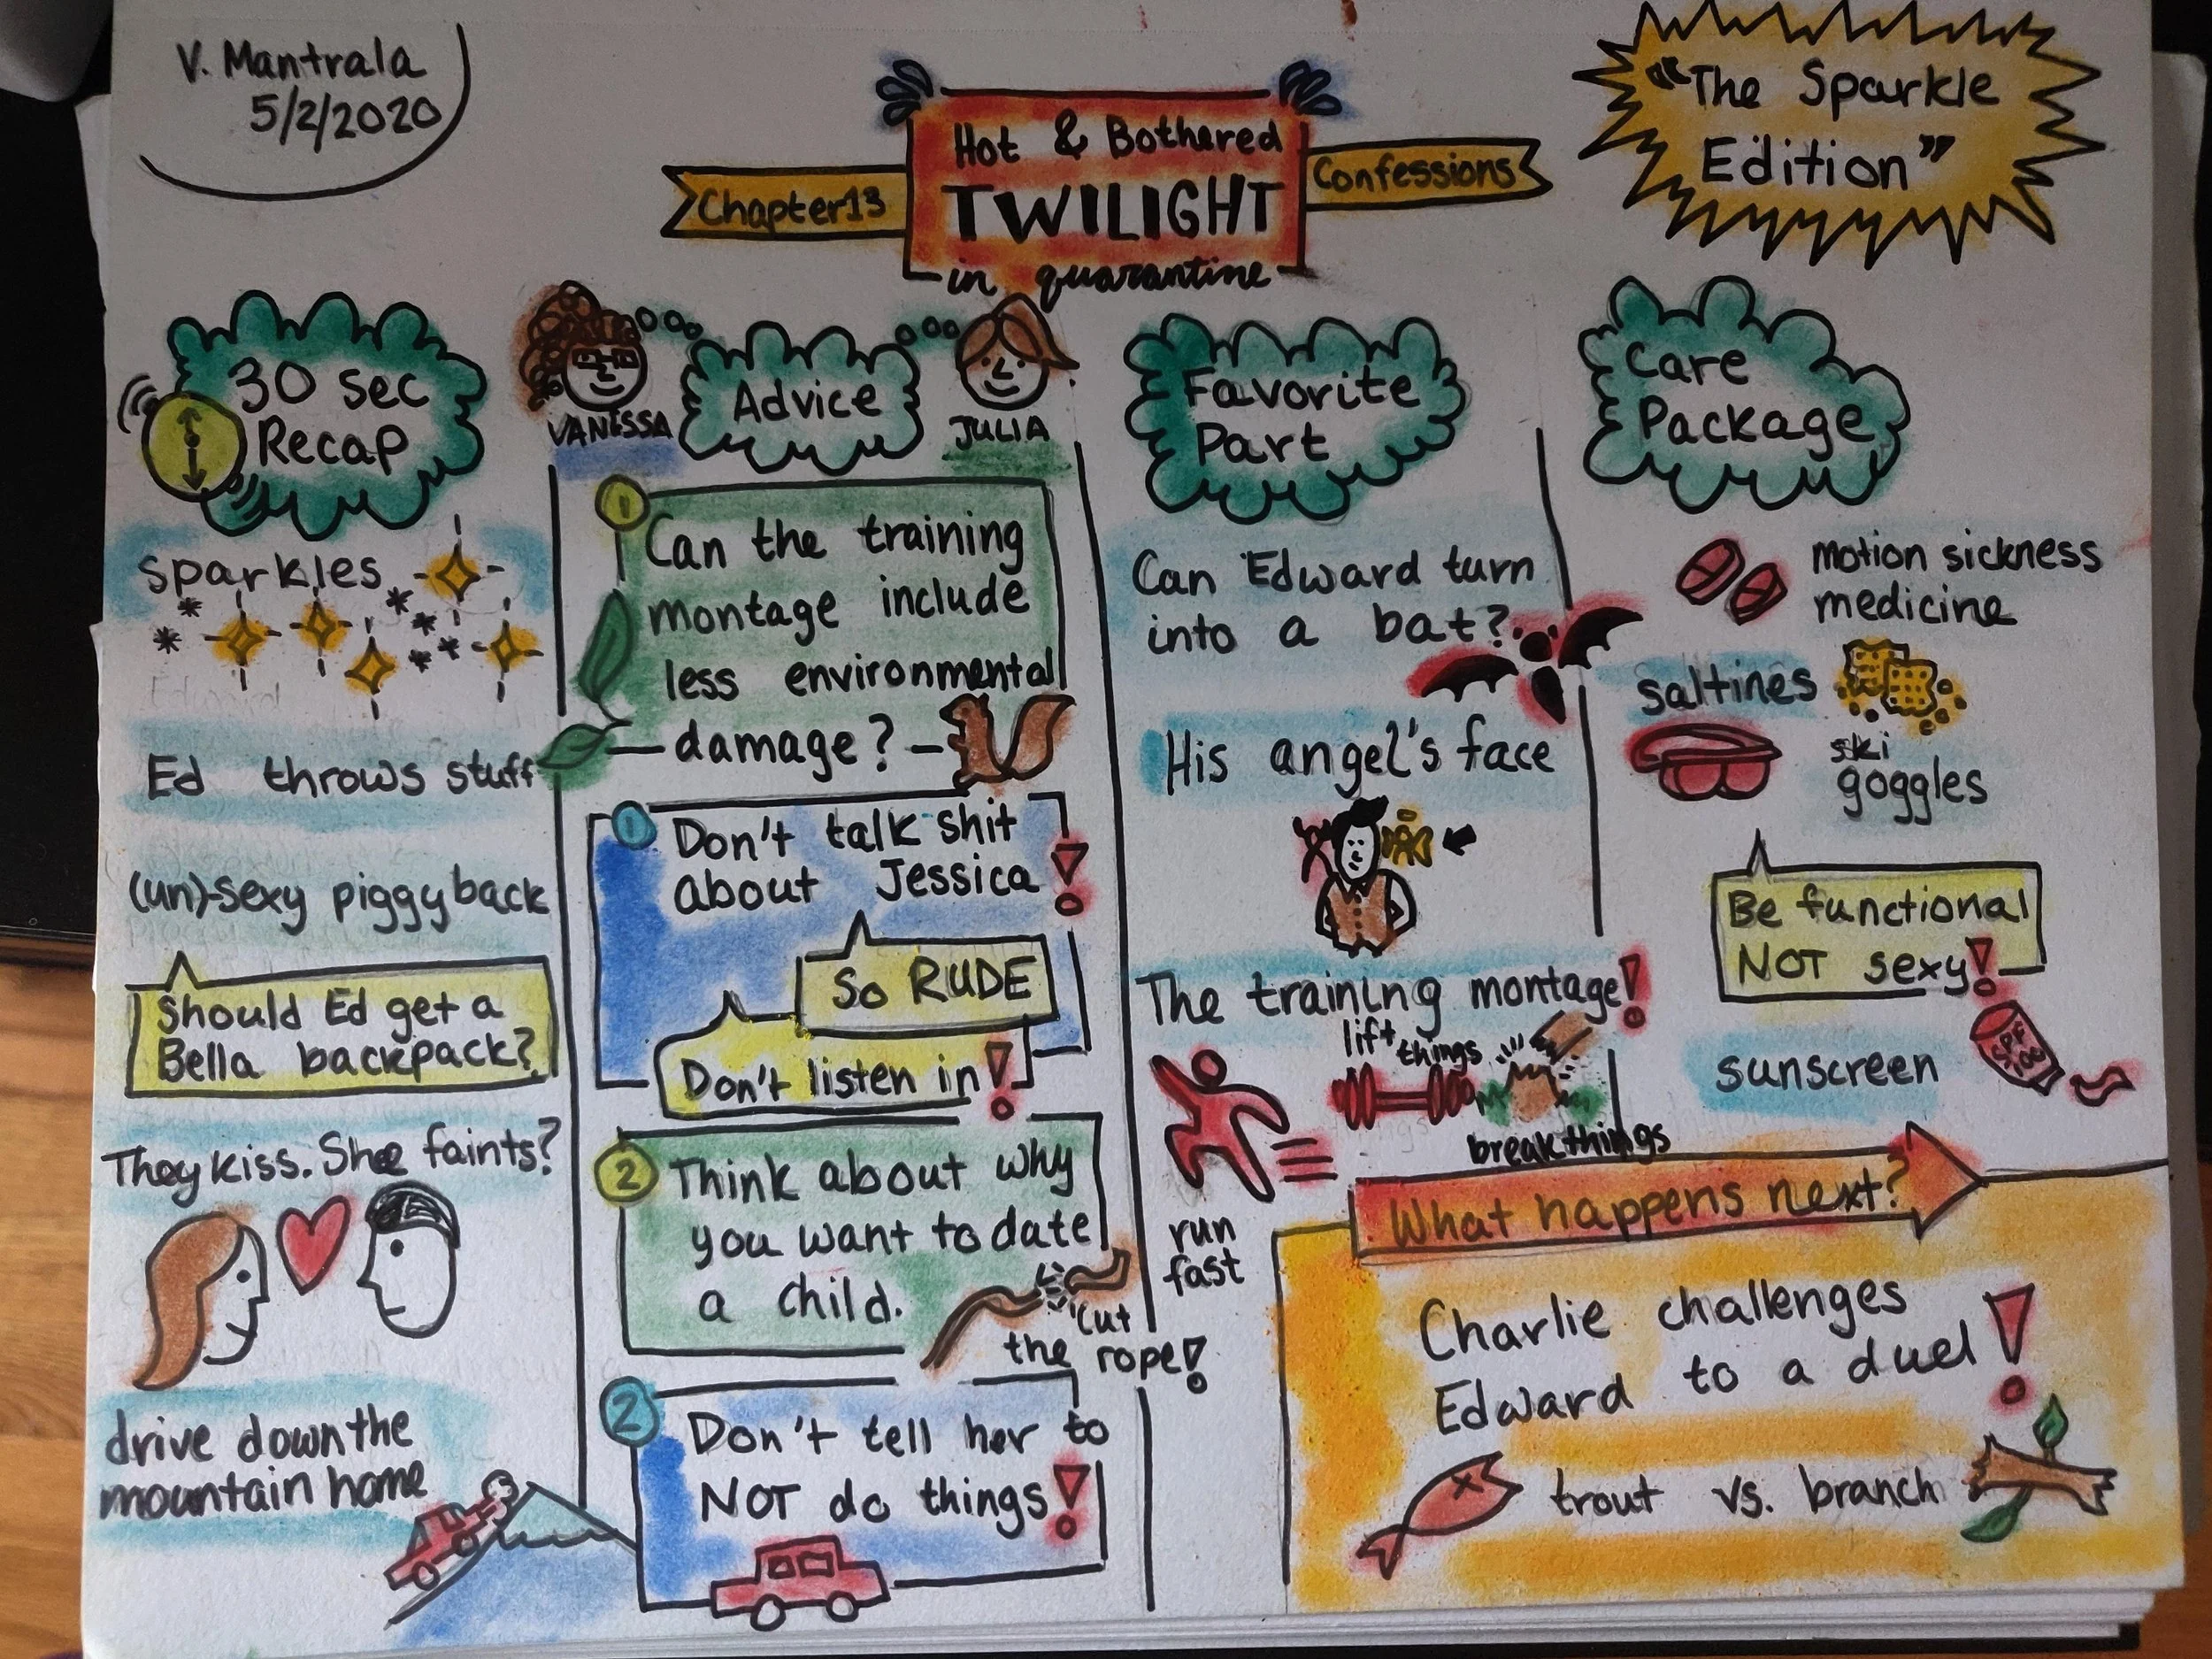 V. Mantrala
5/2/2020
Chapter 13
Hot & Bothared
TWILIGHT
in quarantine
Confessions
"The Sparkle
Edition"
30 sec
Recap
sparkles
Ed throws stuff
(un)-sexy piggyback
Should Ed get a
Bella backpack?
They kiss. She faints?
drive down the
mountain home
VANESSA
Advice
JULIA
1
Can the training
montage include
less environmental
damage?
1
Don't talk shit
about Jessica!
So RUDE
Don't listen in!
2
Think about why
you want to date
a child.
cut
the rope!
2
Don't tell her to
NOT do things!
Favorite
Part
Can Edward turn
into a bat?
His angel's face
The training montage!
lift
things
break things
run
fast
Care
Package
motion sickness
medicine
saltines
ski
goggles
Be functional
NOT sexy!
sunscreen
SPF
What happens next?
Charlie challenges
Edward to a duel!
trout vs. branch